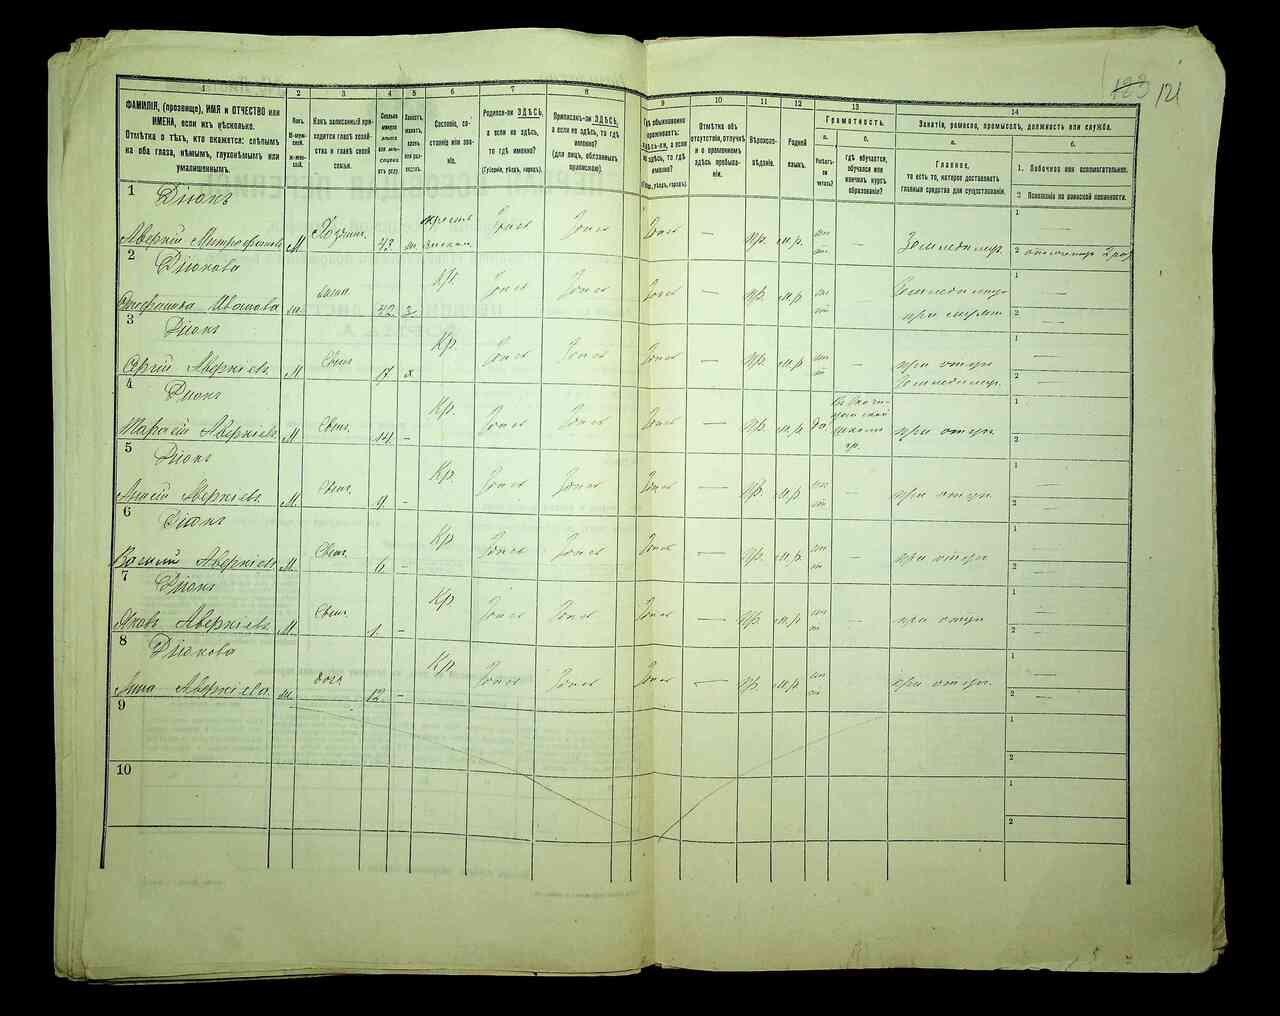 123 121
1 2 3 4 5 6 7 8 9 10 11 12 13 14
ФАМИЛІЯ, (прозвище), ИМЯ и ОТЧЕСТВО или ИМЕНА, если ихъ нѣсколько.
Отмѣтка о тѣхъ, кто окажется: слѣпымъ на оба глаза, нѣмымъ, глухонѣмымъ или умалишеннымъ.
Полъ.
М-мужской.
Ж-женскій.
Какъ записанный приходится главѣ хозяйства и главѣ своей семьи.
Сколько минуло лѣтъ или мѣсяцевъ отъ роду
Холостъ, женатъ, вдовъ или разведенъ.
Сословіе, состояніе или званіе.
Родился-ли ЗДѢСЬ, а если не здѣсь, то гдѣ именно?
(Губернія, уѣздъ, городъ).
Приписанъ-ли ЗДѢСЬ, а если не здѣсь, то гдѣ именно?
(для лицъ, обязанныхъ припискою).
Гдѣ обыкновенно проживаетъ: здѣсь-ли, а если не здѣсь, то гдѣ именно?
(Губ., уѣздъ, городъ).
Отмѣтка объ отсутствіи, отлучкѣ и о временномъ здѣсь пребываніи.
Вѣроисповѣданіе.
Родной языкъ.
Грамотность.
а. Умѣетъ-ли читать?
б. Гдѣ обучается, обучался или кончилъ курсъ образованія?
Занятія, ремесло, промыселъ, должность или служба.
а. Главное,
то есть то, которое доставляетъ главныя средства для существованія.
б.
1. Побочное или вспомогательное.
2 Положеніе по воинской повинности.
1 Діюкъ
Аверкій Митрофановъ М Хозяинъ 43 ж. крестьян. Здѣсь Здѣсь Здѣсь — Пр. м.р. нѣт — Земледѣлецъ 1 — 2 ополченецъ 2 раз
2 Діюкова
Стефанида Иванова ж. жена 42 з. Кр. Здѣсь Здѣсь Здѣсь — Пр. м.р. нѣт — Земледѣлецъ при мужѣ 1 — 2 —
3 Діюкъ
Сергій Аверкіевъ М Сынъ 17 х. Кр. Здѣсь Здѣсь Здѣсь — Пр. м.р нѣт — при отцѣ Земледѣлецъ 1 — 2 —
4 Діюкъ
Аверкіевъ М Сынъ 14 - Кр. Здѣсь Здѣсь Здѣсь — Пр. м.р да школѣ при отцѣ 1 2
5 Діюкъ
Аверкіевъ М. Сынъ 9 - Кр. Здѣсь Здѣсь Здѣсь — Пр. м.р нѣт — при отцѣ 1 — 2 —
6 Діюкъ
Василій Аверкіевъ М. Сынъ 6 - Кр Здѣсь Здѣсь Здѣсь — Пр. м.р. нѣт — при отцѣ 1 — 2 —
7 Діюкъ
Яковъ Аверкіевъ М. Сынъ 1. - Кр Здѣсь Здѣсь Здѣсь — Пр. м.р нѣт — при отцѣ 1 — 2 —
8 Діюкова
Анна Аверкіева ж. дочь 12 - Кр. Здѣсь Здѣсь Здѣсь — Пр. м.р. нѣт — при отцѣ 1 — 2 —
9 1 2
10 1 2